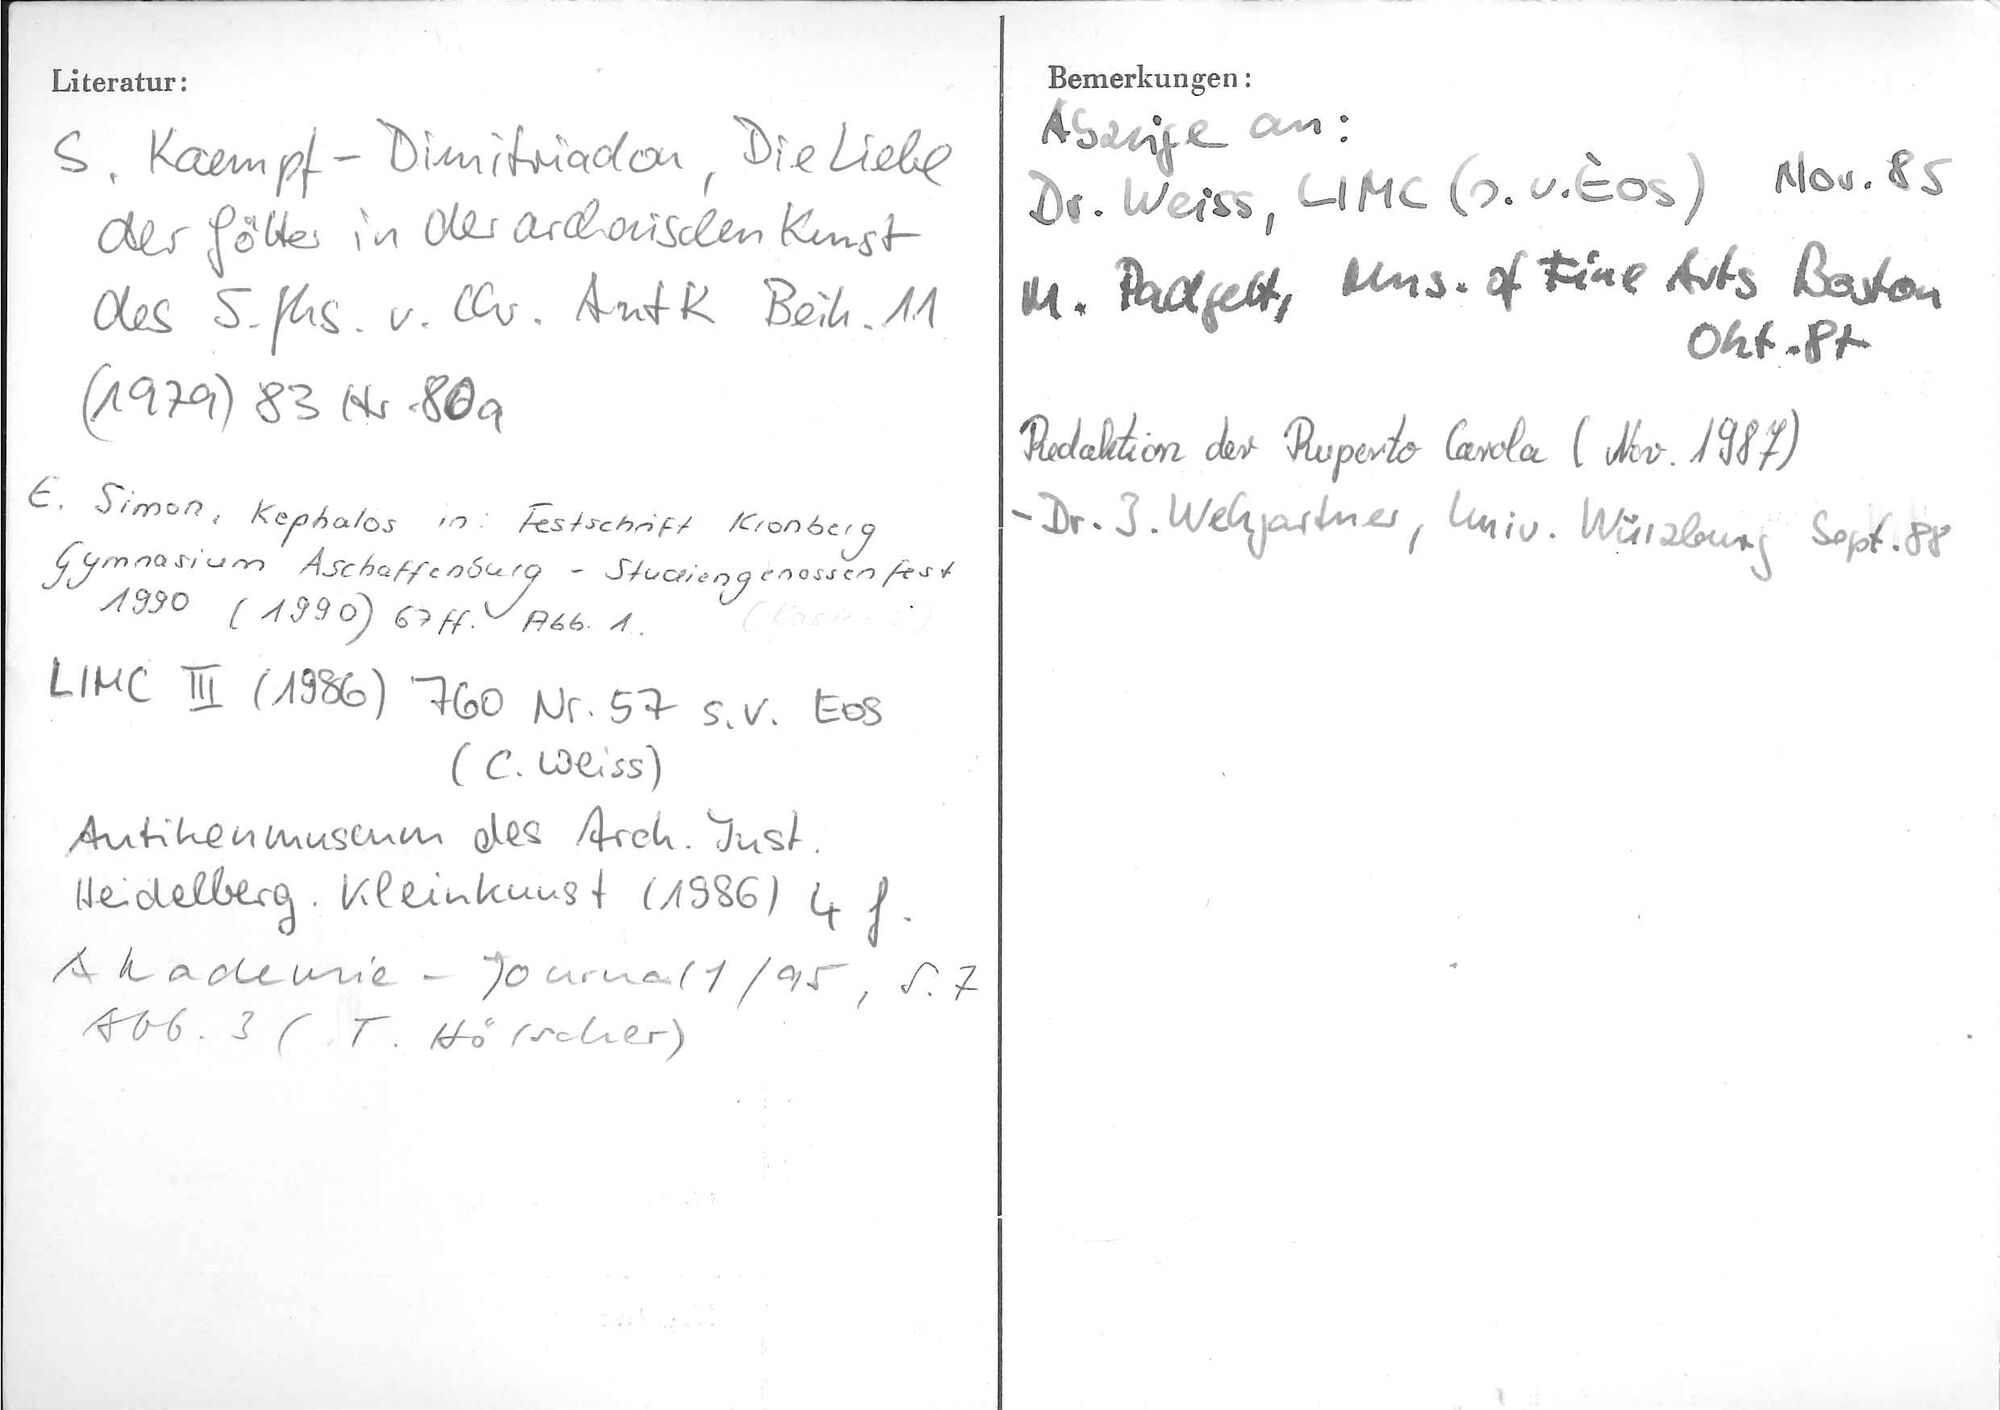 Literatur:
S. Kaempf-Dimitriadou, Die Liebe
der Götter in der archaischen Kunst
des 5. Jhs. v. Chr. AntK Beih. 11
(1979) 83 Nr. 80a
E. Simon, Kephalos in: Festschrift Kronberg
Gymnasium Aschaffenburg - Studiengenossenfest
1990 (1990) 67 ff. Abb. 1.
LIMC III (1986) 760 Nr. 57 s.v. Eos
(C. Weiss)
Antikenmuseum des Arch. Inst.
Heidelberg. Kleinkunst (1986) 4 f.
Akademie - Journal 1/95, S. 7
Abb. 3 (T. Hölscher)
Bemerkungen:
Abzüge an:
Dr. Weiss, LIMC (s.v. Eos) Nov. 85
M. Padgett, Mus. of Fine Arts Boston
Okt. 87
Redaktion der Ruperto Carola (Nov. 1987)
- Dr. I. Wehgartner, Univ. Würzburg Sept. 88